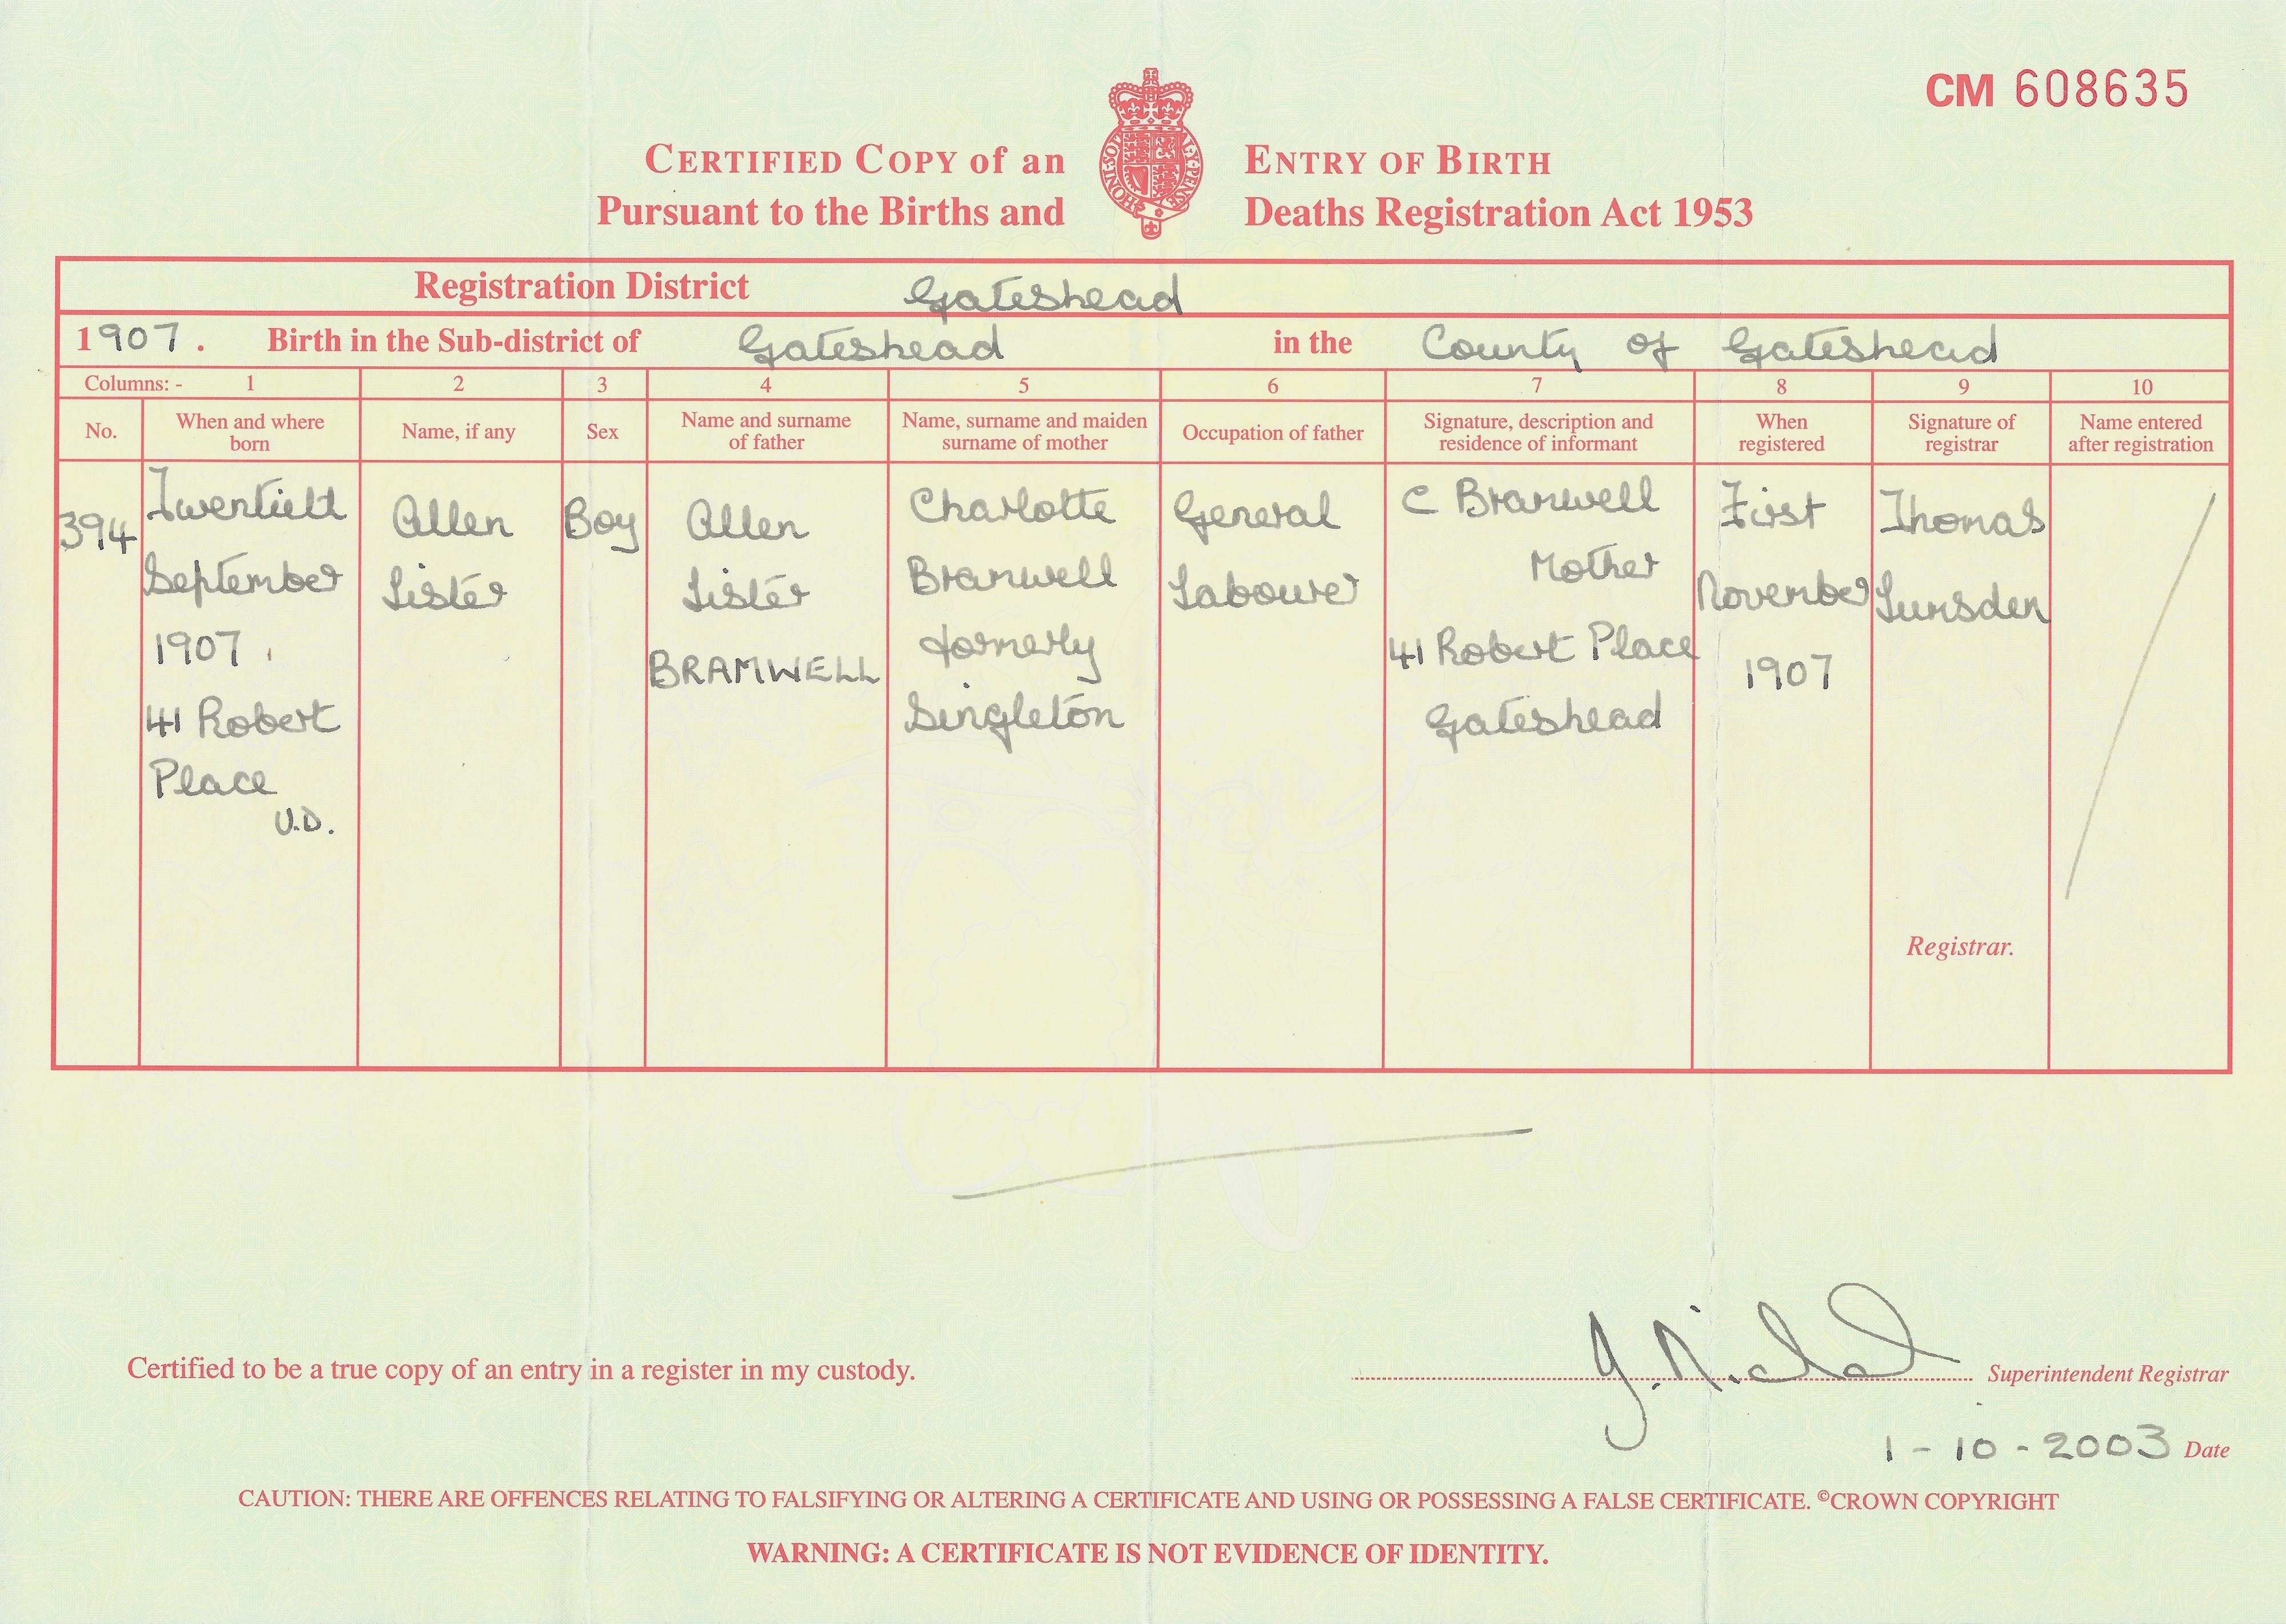 CM 608635
CERTIFIED COPY of an ENTRY OF BIRTH
Pursuant to the Births and Deaths Registration Act 1953
HONI·SOIT Y·PENSE
Registration District Gateshead
1907. Birth in the Sub-district of Gateshead in the County of Gateshead
Columns: - 1 2 3 4 5 6 7 8 9 10
No.
When and where
born
Name, if any
Sex
Name and surname
of father
Name, surname and maiden
surname of mother
Occupation of father
Signature, description and
residence of informant
When
registered
Signature of
registrar
Name entered
after registration
394
Twentieth
September
1907
41 Robert
Place
U.D.
Allen
Lister
Boy
Allen
Lister
BRAMWELL
Charlotte
Bramwell
formerly
Singleton
General
Labourer
C Bramwell
Mother
41 Robert Place
Gateshead
First
November
1907
Thomas
Lumsden
Registrar.
Certified to be a true copy of an entry in a register in my custody.
Superintendent Registrar
1-10-2003 Date
CAUTION: THERE ARE OFFENCES RELATING TO FALSIFYING OR ALTERING A CERTIFICATE AND USING OR POSSESSING A FALSE CERTIFICATE. ©CROWN COPYRIGHT
WARNING: A CERTIFICATE IS NOT EVIDENCE OF IDENTITY.